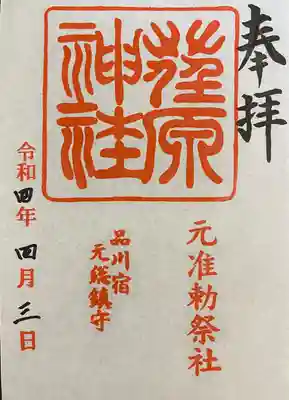 奉拝
荏原
神社
元准勅祭社
品川宿
元総鎮守
令和四年四月三日